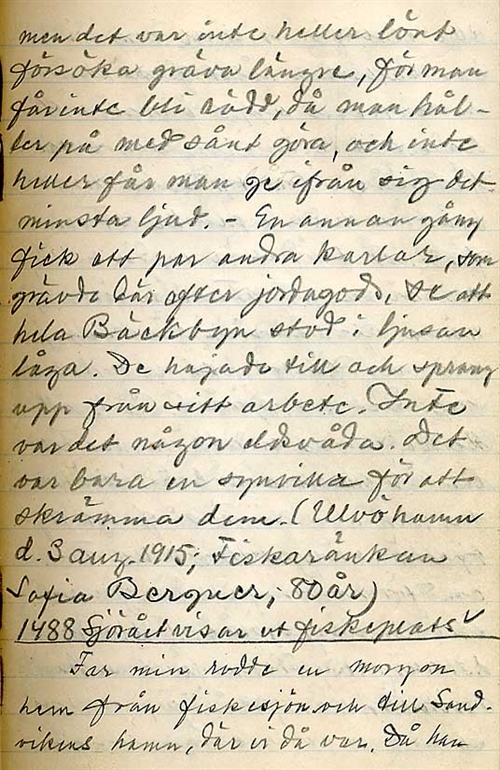 men det var inte heller lönt
försöka gräva längre, för man
får inte bli rädd, då man hål-
ler på med sånt göra, och inte
heller får man ge ifrån sig det
minsta ljud. - En annan gång
fick ett par andra karlar, som
grävde där efter jordagods, se att
hela Bäckbyn stod i ljusan
låga. De hajade till och sprang
upp från sitt arbete. Inte
var det någon eldsvåda. Det
var bara en synvilla för att
skrämma dem. (Ulvöhamn
d. 3 aug. 1915; Fiskaränkan
Sofia Bergner, 80 år)
1488 Sjörået visar ut fiskeplats
Far min rodde en morgon
hem från fiskesjön och till Sand-
vikens hamn, där vi då var. Då han